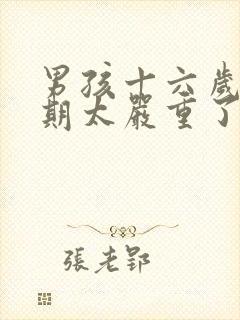 男孩十六歲
期太嚴重了
張老郢